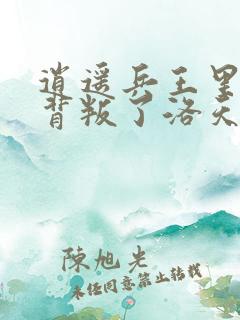 逍遥兵王里
背叛了洛天
陳旭光
未经同意禁止转载